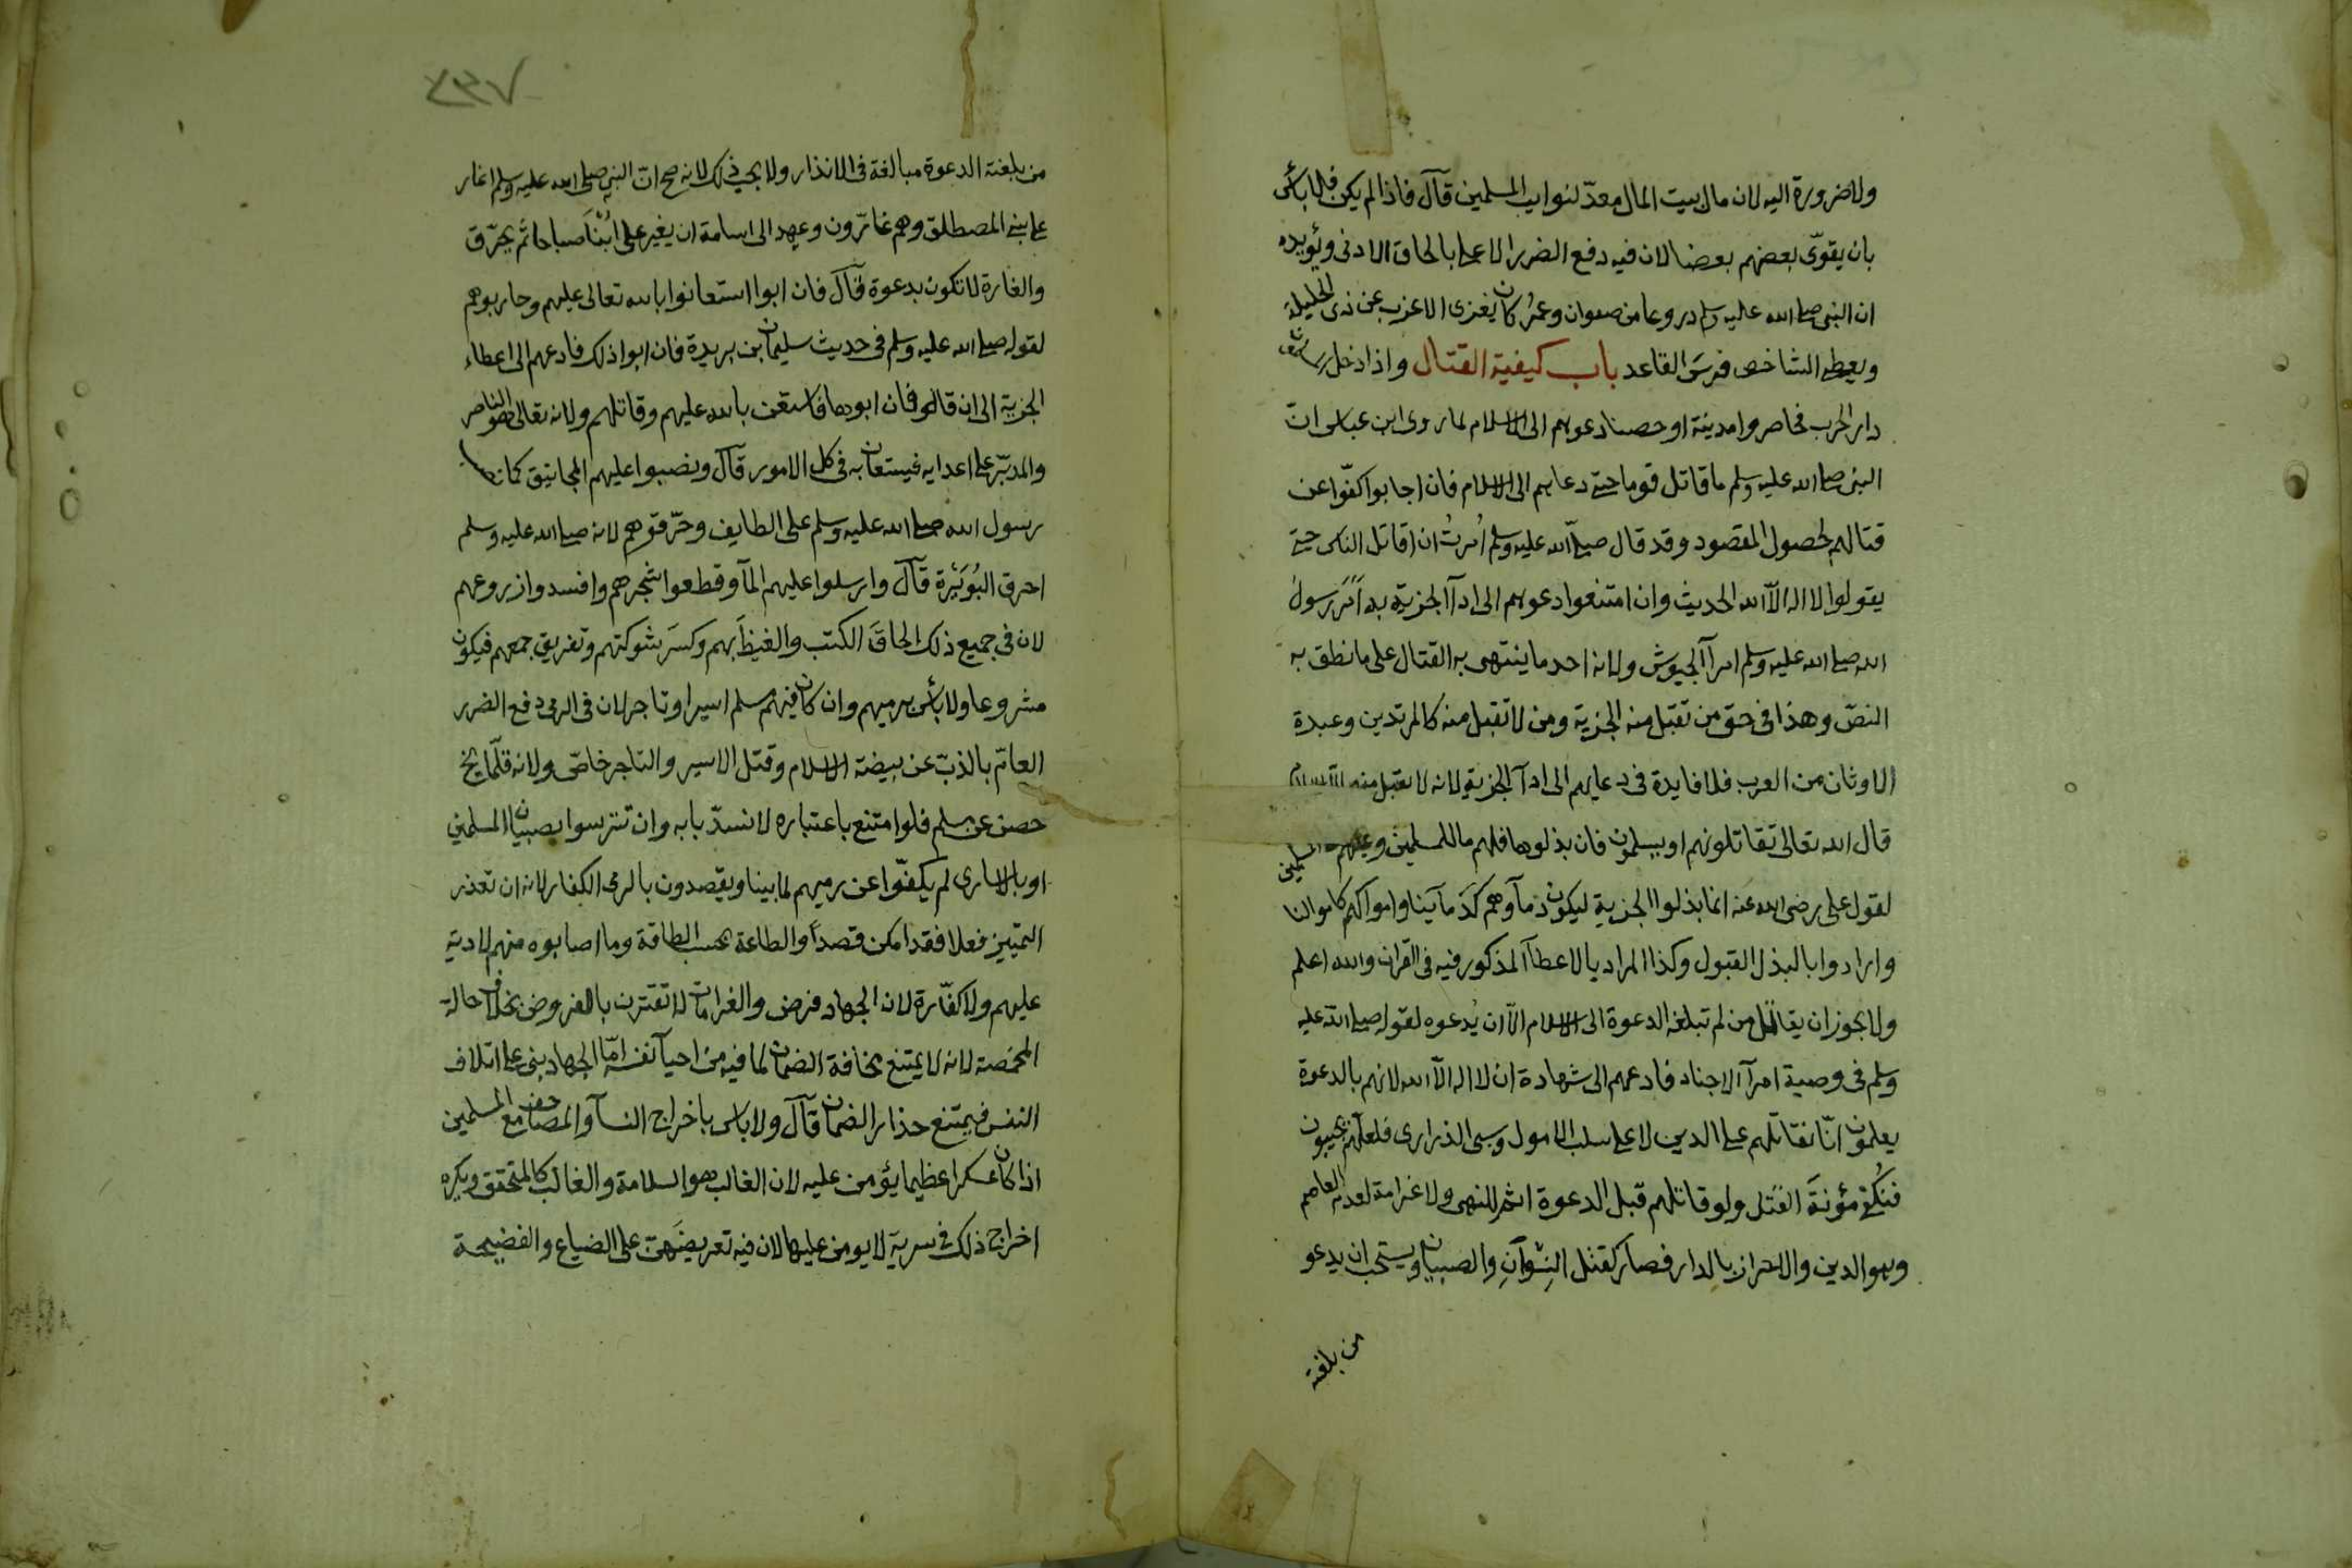 ولا ضرورة اليه لان مال بيت المال معدّ لنوايب المسلمين قآل فاذا لم يكن فلا بأس
بان يقوّى بعضهم بعضا لان فيه دفع الضرر الاعلى بالحاق الادنى ويُويده
ان النبى صلى الله عليه وسلم دروعا من صفوان وعمرُ كان يغزى الاعزب عن ذى الحليلة
ويعطى الشاخص فرسَ القاعد باب كيفية القتال واذا دخل
دار الحرب فحاصروا مدينة او حصنا دعوهم الى الاسلام لما روى ابن عباس انّ
النبى صلى الله عليه وسلم ما قاتل قوما حتى دعاهم الى الاسلام فان اجابوا كفّوا عن
قتالهم لحصول المقصود وقد قال صلىّ الله عليه وسلم اُمرتُ ان اقاتل الناس حتى
يقولوا لا اله الاّ الله الحديث وان امتنعوا دعوهم الى ادآ الجزية به اَمَر رسولُ
الله صلى الله عليه وسلم امرآ الجيوش ولانه احد ما ينتهى به القتال على ما نطق به
النصّ وهذا فى حق من تقبل منه الجزية ومن لا تقبل منه كالمرتدين وعبدة
الاوثان من العرب فلا فايدة فى دعايهم الى ادآ الجزية لانه لا يقبل منهم الا الاسلام
قال الله تعالى تقاتلونهم او يسلمون فان بذلوها فلهم ما للمسلمين وعليهم ما على المسلمين
لقول على رضى الله عنه انما بذلوا الجزية ليكون دمآوهم كَدَمآينا واموالهم كاموالنا
وارادوا بالبذل القبول وكذا المراد بالاعطآ المذكور فيه فى القران والله اعلم
ولا يجوز ان يقاتل من لم تبلغه الدعوة الى الاسلام الاّ ان يُدعوه لقوله صلى الله عليه
وسلم فى وصية امرآ الاجناد فادعهم الى شهادة ان لا اله الاّ الله لانهم بالدعوة
يعلمون انّا نقاتلهم على الدين لا على سلب الامول وسبى الذرارى فلعلّهم يجيبون
فنُكفى مؤنةَ القتل ولو قاتلهم قبل الدعوة اثم للنهى ولا غرامة لعدم العاصم
وهو الدين والاحراز بالدار فصار كقتل النِسْوانِ والصبيان ويستحب ان يدعو
من بلغته
٢٣٧
من بلغته الدعوة مبالغة فى الانذار ولا يجب ذلك لانه صح انّ النبى صلى الله عليه وسلم اغار
على بنى المصطلق وهم غارّون وعهد الى اسامة ان يغير على اُبْنَا صباحا ثم يحرّق
والغارة لا تكون بدعوة قآل فان ابوا استعانوا بالله تعالى عليهم وحاربوهم
لقوله صلى الله عليه وسلم فى حديث سليمان بن بريدة فان ابوا ذلك فادعهم الى اعطاء
الجزية الى ان قال فان ابوها فاستعن بالله عليهم وقاتلهم ولانه تعالى هو الناصر
والمدبّر على اعدايه فيستعان به فى كل الامور قآل ونصبوا عليهم المجانيق كما نصب
رسول الله صلى الله عليه وسلم على الطايف وحرّقوهم لانه صلى الله عليه وسلم
احرق البُوَيْرة قآل وارسلوا عليهم المآ وقطعوا شجرهم وافسدوا زروعهم
لان فى جميع ذلك الحاقَ الكبت والغيظَ بهم وكسرَ شوكتهم وتفريق جمعهم فيكون
مشروعا ولا بأس برميهم وان كان فيهم مسلم اسير او تاجر لان فى الرمى دفع الضرر
العامّ بالذبّ عن بيضة الاسلام وقتل الاسير والتاجر خاصّ ولانه قلّما يخ
حصن عن مسلم فلو امتنع باعتباره لانسدّ بابه وان تترسوا بصبيان المسلمين
او بالاسارى لم يكفّوا عن رميهم لما بينا ويقصدون بالرمى الكفار لانه ان تعذر
التمييز فعلا فقد امكن قصداً والطاعة بحسب الطاقة وما اصابوه منهم لا دية
عليهم ولا كفّارة لان الجهاد فرض والغرامات لا تقترن بالفروض بخلاف حالة
المخمصة لانه لا يمتنع مخافة الضمان لما فيه من احيآ نفسه امّا الجهاد بنى على اتلاف
النفس فيمتنع حذار الضمان قآل ولا باس باخراج النسآ والمصاحف مع المسلمين
اذا كان عسكرا عظيما يؤمن عليه لان الغالب هو السلامة والغالب كالمتحقق ويكره
اخراج ذلك فى سرية لا يومن عليها لان فيه تعريضَهنّ على الضياع والفضيحة